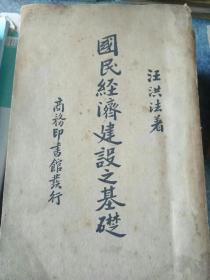 汪洪法著
國民經濟建設之基礎
商務印書館發行